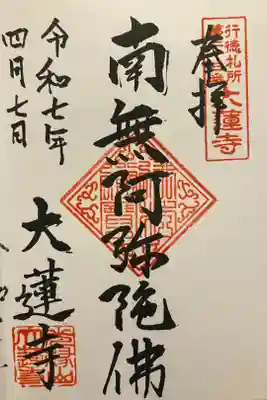 行徳札所
大蓮寺
奉拝
南無阿弥陀佛
令和七年
四月七日
大蓮寺